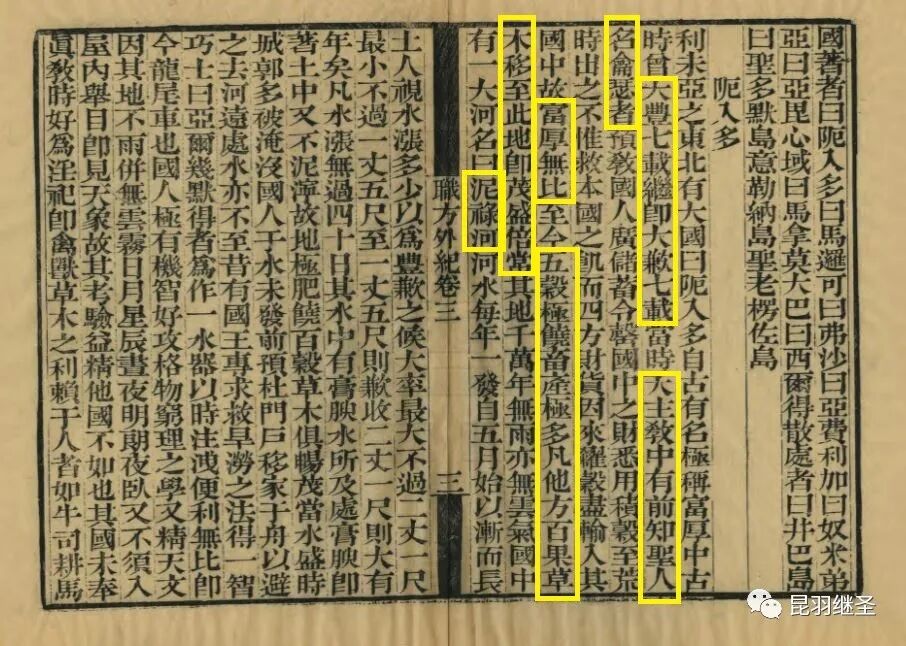 國著者曰阨入多曰馬邏可曰弗沙曰亞費利加曰奴米弟
亞曰亞毘心域曰馬拿莫大巴曰西爾得散處者曰井巴島
曰聖多默島意勒納島聖老楞佐島
阨入多
利未亞之東北有大國曰阨入多自古有名極稱富厚中古
時曾大豐七載繼即大歉七載當時天主教中有前知聖人
名龠瑟者預教國人廣儲蓄令罄國中之財悉用積穀至荒
時出之不惟救本國之飢而四方財貨因來糴穀盡輸入其
國中故富厚無比至今五穀極饒畜產極多凡他方百果草
木移至此地即茂盛倍常其地千萬年無雨亦無雲氣國中
有一大河名曰泥祿河河水每年一發自五月始以漸而長
職方外紀卷三
三
土人視水漲多少以爲豐歉之候大率最大不過二丈一尺
最小不過一丈五尺至一丈五尺則歉收二丈一尺則大有
年矣凡水漲無過四十日其水中有膏腴水所及處膏腴即
著土中又不泥濘故地極肥饒百穀草木俱暢茂當水盛時
城郭多被淹沒國人于水未發前預杜門戶移家于舟以避
之去河遠處水亦不至昔有國王專求救旱澇之法得一智
巧士曰亞爾幾默得者爲作一水器以時注洩便利無比即
今龍尾車也國人極有機智好攻格物窮理之學又精天文
因其地不雨併無雲霧日月星辰晝夜明朗夜臥又不須入
屋內舉目即見天象故其考驗益精他國不如也其國未奉
眞教時好爲淫祀即禽獸草木之利賴于人者如牛司耕馬
昆羽继圣